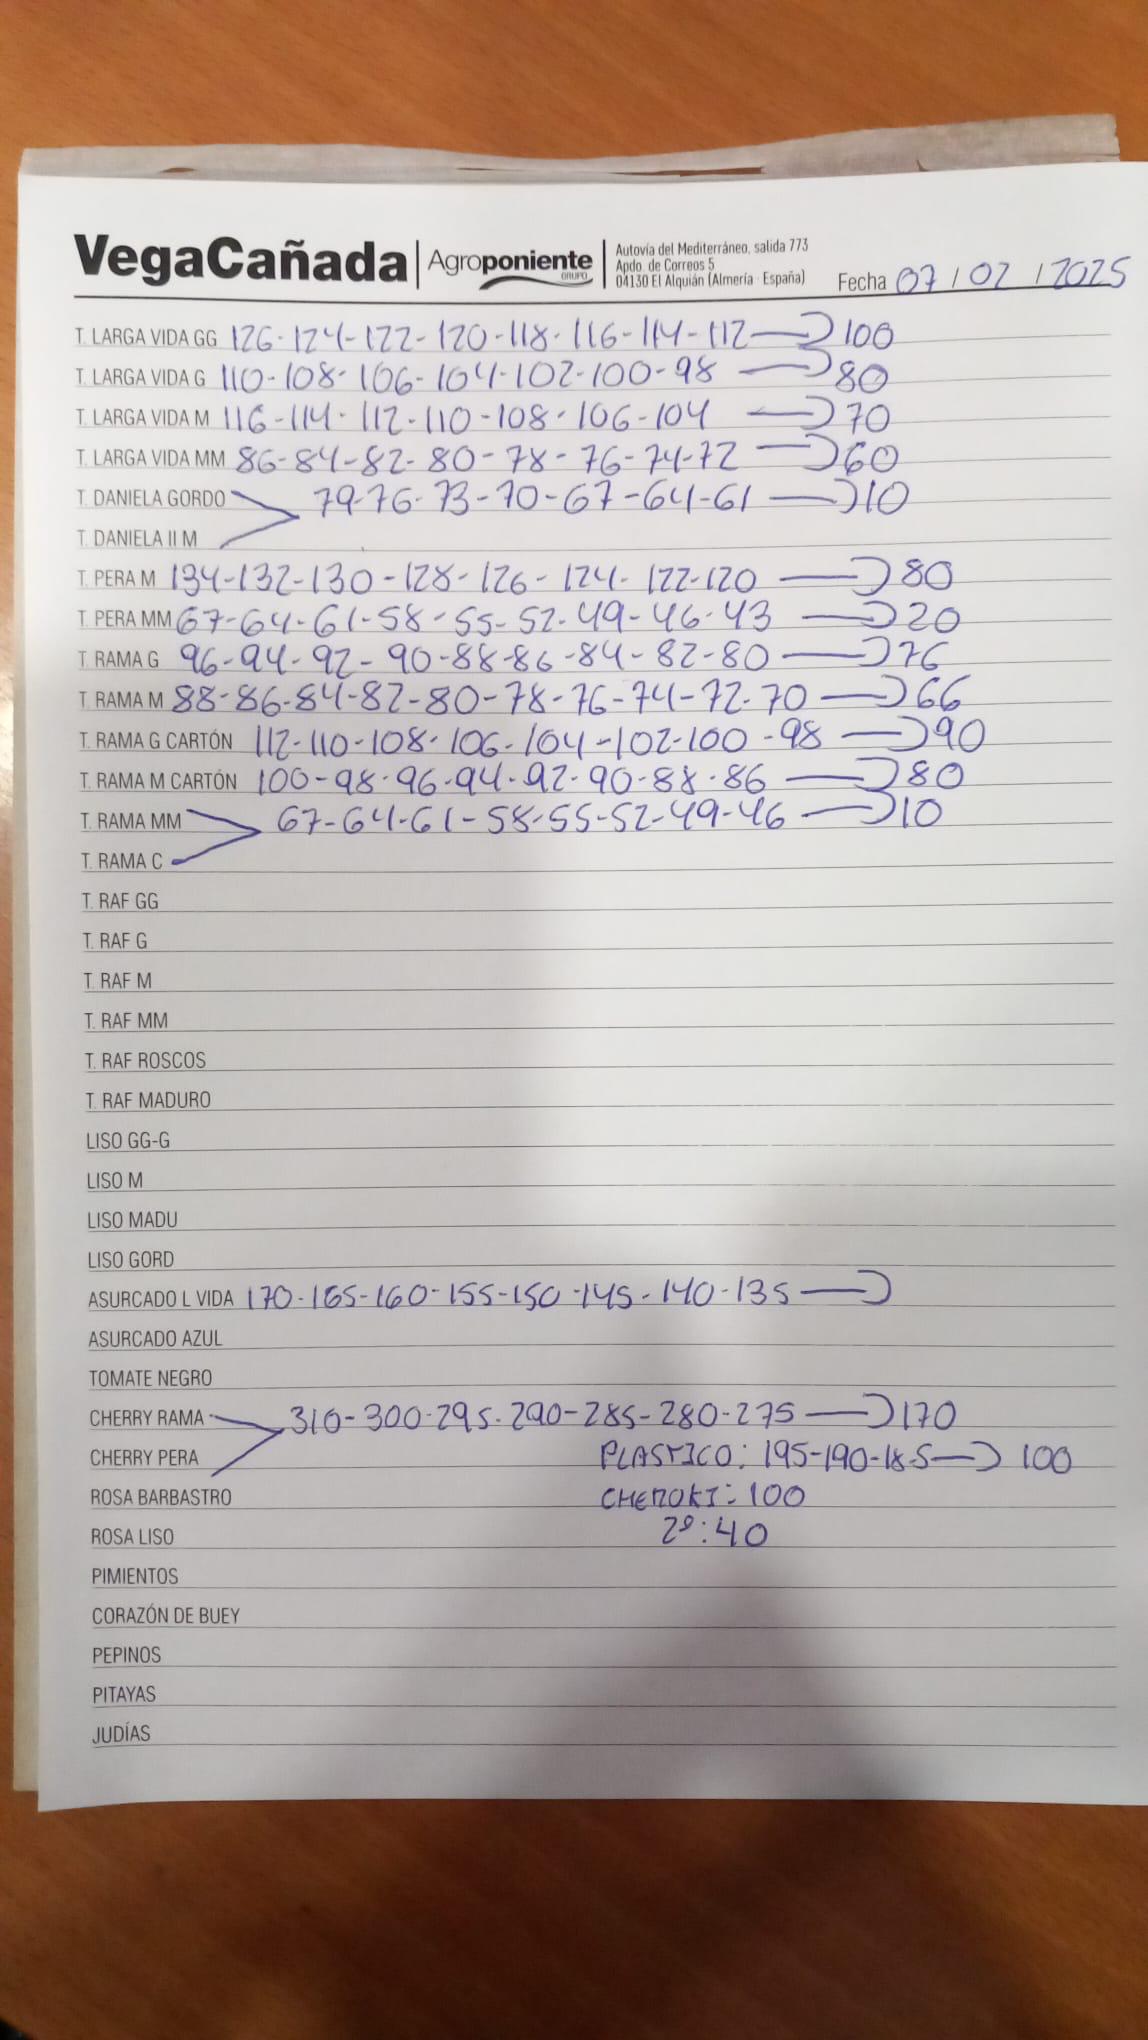 VegaCañada | Agroponiente GRUPO | Autovía del Mediterráneo, salida 773
Apdo. de Correos 5
04130 El Alquián (Almería - España)
Fecha 07 / 02 / 2025
T. LARGA VIDA GG 126-124-122-120-118-116-114-112 → 100
T. LARGA VIDA G 110-108-106-104-102-100-98 → 80
T. LARGA VIDA M 116-114-112-110-108-106-104 → 70
T. LARGA VIDA MM 86-84-82-80-78-76-74-72 → 60
T. DANIELA GORDO 79-76-73-70-67-64-61 → 10
T. DANIELA II M
T. PERA M 134-132-130-128-126-124-122-120 → 80
T. PERA MM 67-64-61-58-55-52-49-46-43 → 20
T. RAMA G 96-94-92-90-88-86-84-82-80 → 76
T. RAMA M 88-86-84-82-80-78-76-74-72-70 → 66
T. RAMA G CARTÓN 112-110-108-106-104-102-100-98 → 90
T. RAMA M CARTÓN 100-98-96-94-92-90-88-86 → 80
T. RAMA MM 67-64-61-58-55-52-49-46 → 10
T. RAMA C
T. RAF GG
T. RAF G
T. RAF M
T. RAF MM
T. RAF ROSCOS
T. RAF MADURO
LISO GG-G
LISO M
LISO MADU
LISO GORD
ASURCADO L VIDA 170-165-160-155-150-145-140-135 →
ASURCADO AZUL
TOMATE NEGRO
CHERRY RAMA 310-300-295-290-285-280-275 → 170
CHERRY PERA PLASTICO: 195-190-185 → 100
ROSA BARBASTRO CHEROKI: 100
ROSA LISO 2º: 40
PIMIENTOS
CORAZÓN DE BUEY
PEPINOS
PITAYAS
JUDÍAS